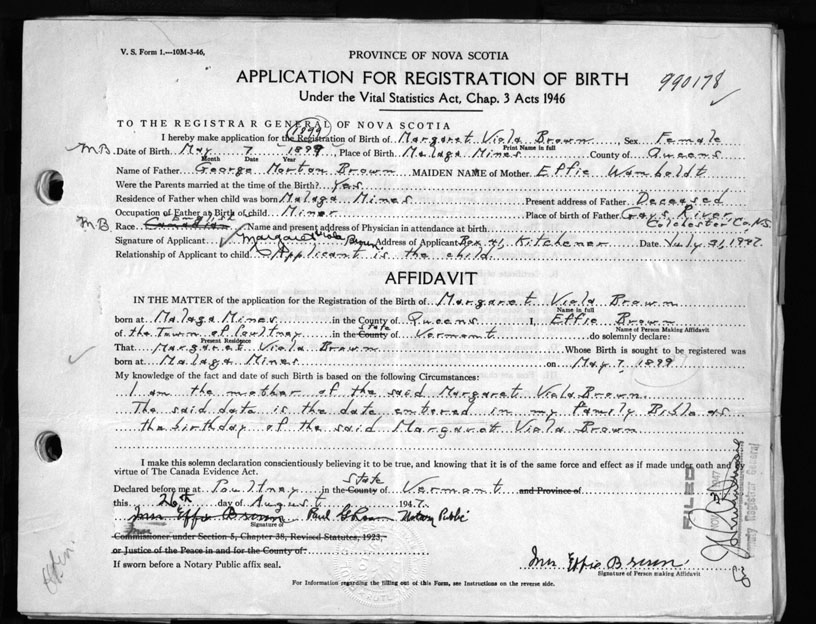 V. S. Form 1.—10M-3-46.
PROVINCE OF NOVA SCOTIA
APPLICATION FOR REGISTRATION OF BIRTH
990178
Under the Vital Statistics Act, Chap. 3 Acts 1946
TO THE REGISTRAR GENERAL OF NOVA SCOTIA
1899
I hereby make application for the Registration of Birth of Margaret Viola Brown, Sex Female
Print Name in full
M.B. Date of Birth May 7 1899, Place of Birth Malaga Mines County of Queens
Month Date Year
Name of Father George Morton Brown MAIDEN NAME of Mother Effie Wamboldt
Were the Parents married at the time of the Birth? Yes
Residence of Father when child was born Malaga Mines Present address of Father Deceased
Occupation of Father at Birth of child Miner Place of birth of Father Gays River,
Colchester Co. N.S.
English
M.B. Race Canadian Name and present address of Physician in attendance at birth
Signature of Applicant Margaret Viola Brown Address of Applicant Box 41, Kitchener Date July 31, 1947.
Relationship of Applicant to child Applicant is the child.
AFFIDAVIT
IN THE MATTER of the application for the Registration of the Birth of Margaret Viola Brown
Name in full
born at Malaga Mines in the County of Queens I, Effie Brown
Name of Person Making Affidavit
State
of the Town of Poultney in the County of Vermont do solemnly declare:
Present Residence
That Margaret Viola Brown Whose Birth is sought to be registered was
born at Malaga Mines on May 7, 1899
My knowledge of the fact and date of such Birth is based on the following Circumstances:
I am the mother of the said Margaret Viola Brown.
The said date is the date entered in my Family Bible as
the birthday of the said Margaret Viola Brown
I make this solemn declaration conscientiously believing it to be true, and knowing that it is of the same force and effect as if made under oath and by
virtue of The Canada Evidence Act.
State
Declared before me at Poultney in the County of Vermont and Province of
this 26th day of August 1947.
Mrs Effie Brown Paul Notary Public
Signature of
Commissioner under Section 5, Chapter 38, Revised Statutes, 1923,
or Justice of the Peace in and for the County of
If sworn before a Notary Public affix seal.
Mrs Effie Brown.
Signature of Person making Affidavit
For Information regarding the filling out of this Form, see Instructions on the reverse side.
FILED
Deputy Registrar General